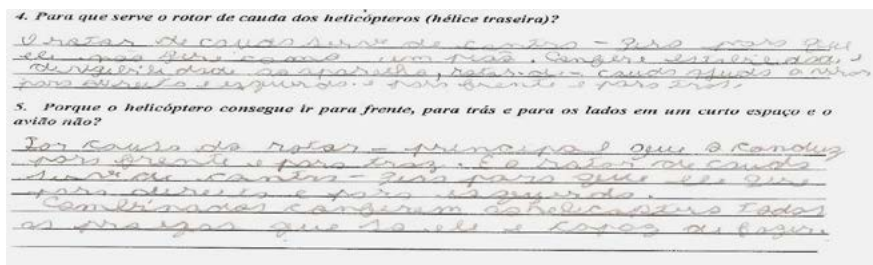 4. Para que serve o rotor de cauda dos helicópteros (hélice traseira)?
O rotor de cauda serve de contra - giro para que
ele não gire como um pião. Confere estabilidade, e
dirigibilidade ao aparelho, rotor-de-cauda ajuda a virar
para direita e esquerda. e para frente e para traz.
5. Porque o helicóptero consegue ir para frente, para trás e para os lados em um curto espaço e o
avião não?
Por causa do rotor - principal que o conduz
para frente e para traz. E o rotor de cauda
serve de contra - giro para que ele gire
para direita e para esquerda.
Combinados conferem ao helicoptero todas
as proezas que so ele é capaz de fazer.